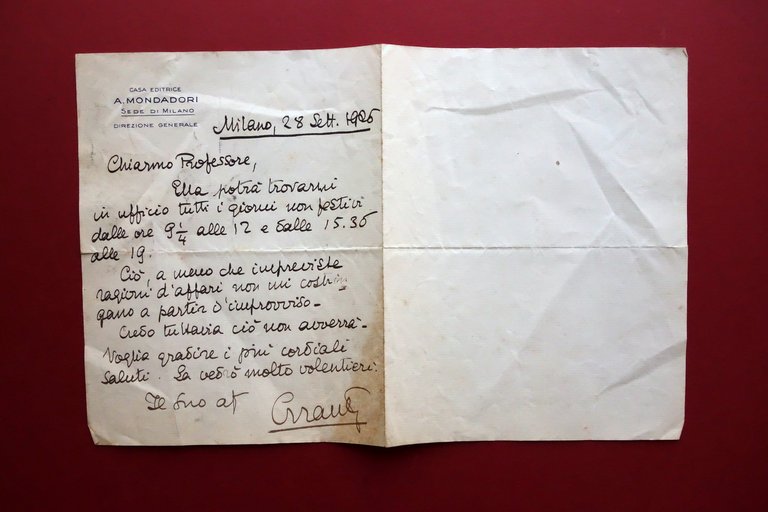 CASA EDITRICE
A. MONDADORI
SEDE DI MILANO
DIREZIONE GENERALE
Milano, 28 Sett. 1926
Chiarmo Professore,
Ella potrà trovarmi
in ufficio tutti i giorni non festivi
dalle ore 9 1/4 alle 12 e dalle 15.30
alle 19.
Ciò, a meno che impreviste
ragioni d'affari non mi costrin
gano a partir d'improvviso.
Credo tuttavia ciò non avverrà.
Voglia gradire i più cordiali
saluti. La vedrò molto volentieri.
Il Suo